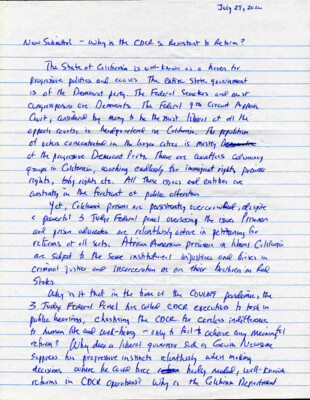 July 25, 2020
New Submittal - Why is the CDCR so Resistant to Reform?
The State of California is well-known as a haven for
progressive politics and causes. The entire State government
is of the Democrat party. The Federal Senators and most
congresspersons are Democrats. The Federal 9th Circuit Appeals
Court, considered by many to be the most liberal of all the
appeals courts, is headquartered in California. The population
of voters concentrated in the larger cities is mostly
of the progressive Democrat Party. There are countless advocacy
groups in California, working endlessly for immigrant rights, prisoner
rights, lgbtq rights etc. All these issues and entities are
constantly in the forefront of public attention.
Yet, California prisons are persistently overcrowded, despite
a powerful 3 Judge Federal panel overseeing the issue. Prisoners
and prison advocates are relentlessly active in petitioning for
reforms of all sorts. African American prisoners in liberal California
are subject to the same institutional injustices and biases in
criminal justice and incarceration as are their brethren in Red
States.
Why is it that in the time of the COVID19 pandemic, the
3 Judge Federal Panel has called CDCR executives to task in
public hearings, chastising the CDCR for careless indifference
to human life and well-being - only to fail to achieve any meaningful
reform? Why does a liberal governor such as Gavin Newsome
suppress his progressive instincts relentlessly when making
decisions where he could force badly needed, well-known
reforms in CDCR operations? Why is the California Department